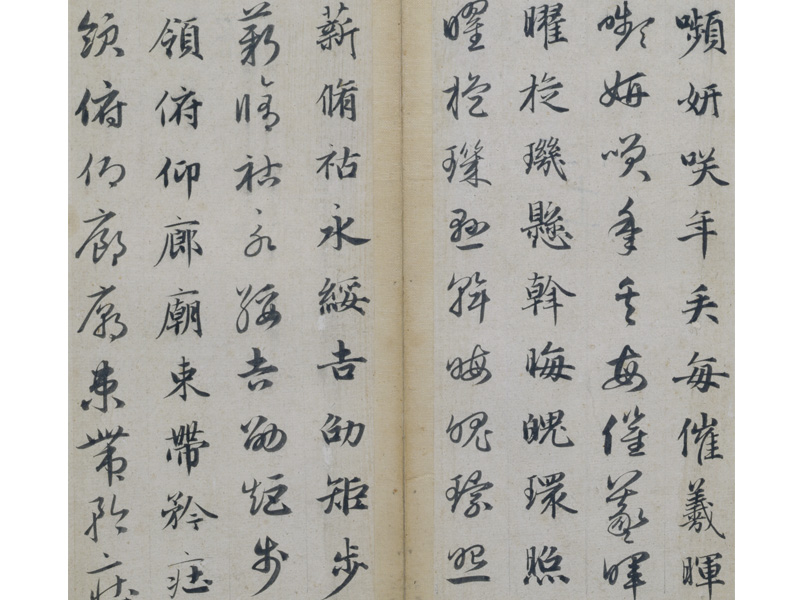 嚬妍咲年矢每催羲暉
嚬妍咲年矢每催羲暉
曜旋璣懸斡晦魄環照
曜旋璣懸斡晦魄環照
薪脩祜永綏吉劭矩步
薪脩祜永綏吉劭矩步
領俯仰廊廟束帶矜莊
領俯仰廊廟束帶矜莊